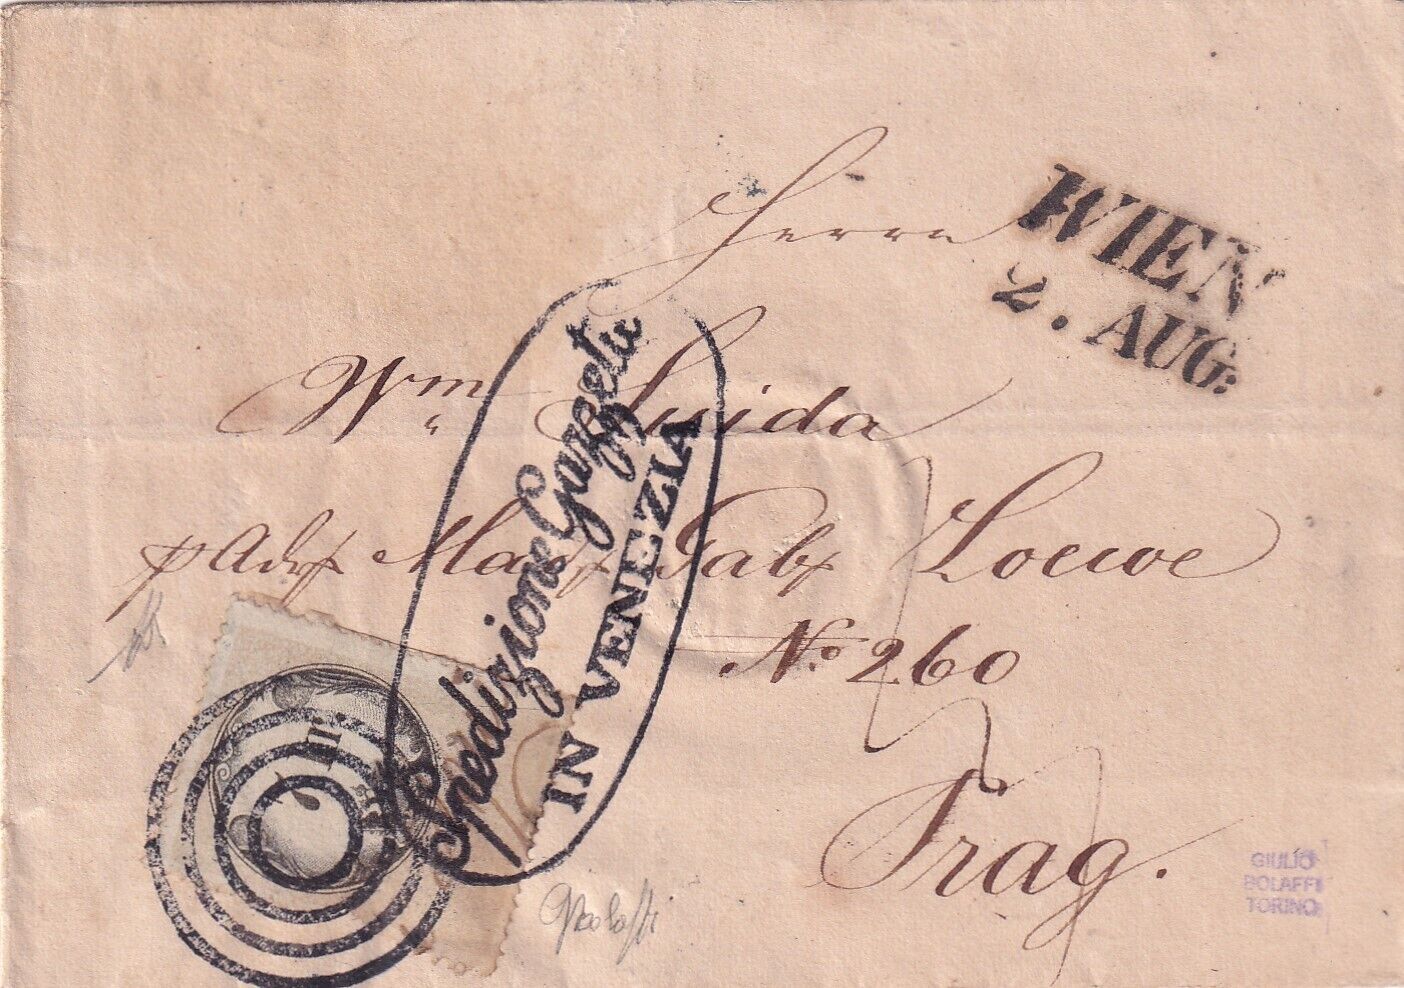 Herrn
WIEN
2. AUG:
Wm Suida
p Adr Mad Gab Loewe
No. 260
Prag.
Spedizione Gazzette
IN VENEZIA
GIULIO
BOLAFFI
TORINO